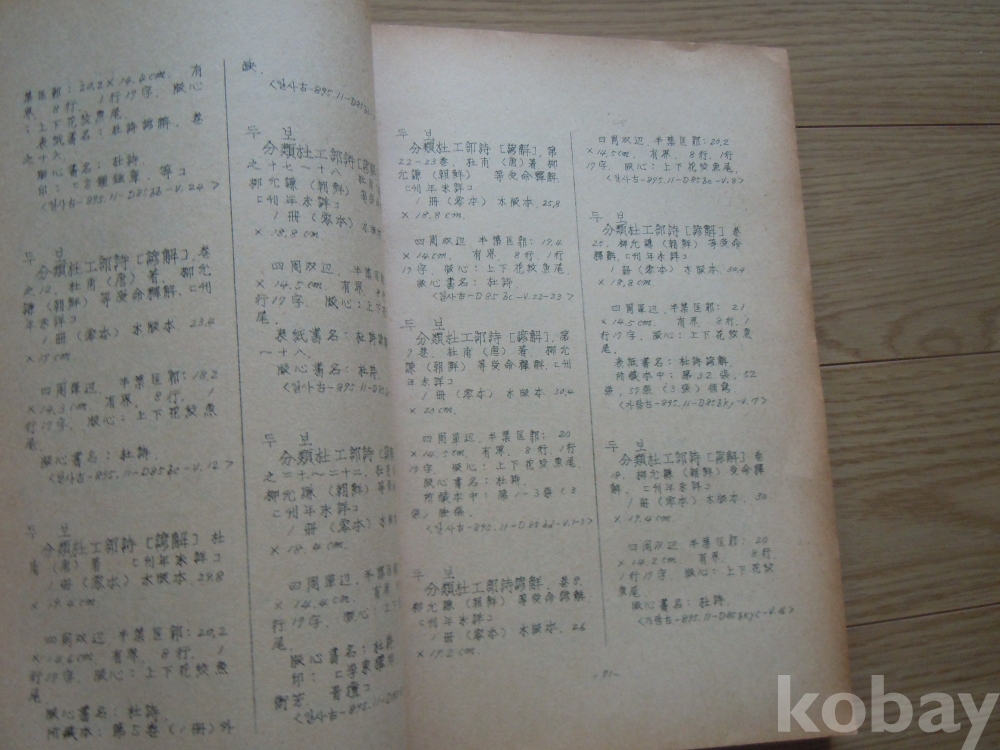 葉匡郭: 20.2×14.4cm. 有
界. 8行. 1行17字. 版心
: 上下花紋魚尾.
表紙書名: 杜詩諺解. 卷
之十六.
版心書名: 杜詩.
<일사古-895.11-D85bc-V.24>
두 보
分類杜工部詩 [諺解]. 卷
之12. 杜甫 (唐) 著. 柳允
謙 (朝鮮) 等受命譯解. ㄷ刊
年未詳ㄱ
1冊 (零本) 木版本. 23.4
四周單辺. 半葉匡郭: 18.2
×14.3cm. 有界. 8行. 1
行17字. 版心: 上下花紋魚
尾.
版心書名: 杜詩.
<일사古-895.11-D85bc-V.12>
두 보
分類杜工部詩 [諺解] 杜
甫 (唐) 著 ㄷ刊年未詳ㄱ
1冊 (零本) 木版本. 29.8
× 19.4cm.
四周双辺. 半葉匡郭: 20.2
×14.6cm. 有界. 8行. 1
行17字. 版心: 上下花紋魚
尾
版心書名: 杜詩.
所藏本: 第5卷 (1冊) 外
缺.
<일사古-895.11-D85b
두 보
分類杜工部詩 [諺解
之十七~十八. 杜
柳允謙 (朝鮮)
ㄷ刊年未詳ㄱ
1冊 (零本)
× 18.8cm.
四周双辺. 半葉匡
× 14.5cm. 有界.
行17字. 版心: 上下
尾.
表紙書名: 杜詩諺
~十八.
版心書名: 杜詩
<일사古-895.11-D85
두 보
分類杜工部詩 [諺解
之二十一~二十二. 杜
柳允謙 (朝鮮) 等
ㄷ刊年未詳ㄱ
1冊 (零本) 木
× 18.4cm.
四周單辺. 半葉
× 14.4cm. 有
行17字. 版心:
尾.
版心書名:
<일사古-895.11-
두 보
分類杜工部詩 [諺解]. 第
22-23卷. 杜甫 (唐) 著 柳
允謙 (朝鮮) 等受命譯解.
ㄷ刊年未詳ㄱ
1冊 (零本) 木版本. 25.8
× 18.8cm.
四周双辺. 半葉匡郭: 19.4
×14.5cm. 有界. 8行. 1行
17字. 版心: 上下花紋魚尾
版心書名: 杜詩
<일사古-D85bc-V.22-23>
두 보
分類杜工部詩 [諺解]. 第
7卷. 杜甫 (唐) 著 柳允
謙 (朝鮮) 等受命譯解. ㄷ刊
年未詳ㄱ
1冊 (零本) 木版本 30.4
× 20cm.
四周單辺. 半葉匡郭: 20
×14.5cm. 有界. 8行. 1行
17字. 版心: 上下花紋魚尾
版心書名: 杜詩.
所藏本中: 第1-3卷 (3
두 보
分類杜工部詩諺解. 卷
允謙 (朝鮮) 等受命諺解.
ㄷ刊年未詳ㄱ
1冊 (零本) 木版本. 26
× 19.2cm.
四周双辺. 半葉匡郭: 20.2
×14.5cm. 有界. 8行. 1行
17字. 版心: 上下花紋魚尾.
두 보
分類杜工部詩 [諺解] 卷
25. 柳允謙 (朝鮮) 等受命
譯解. ㄷ刊年未詳ㄱ
1冊 (零本) 木版本. 30.4
× 18.8cm.
四周單辺. 半葉匡郭: 21
×14.5cm. 有界. 8行. 1
行17字. 版心: 上下花紋魚
尾.
表紙書名: 杜詩諺解.
所藏本中: 第32張, 52
張, 57張 (3張) 補寫.
<가람古-895.11-D85bky-V.7>
두 보
分類杜工部詩 [諺解] 卷
柳允謙 (朝鮮) 受命譯
解. ㄷ刊年未詳ㄱ
1冊 (零本) 木版本. 30
× 19.4cm.
四周双辺. 半葉匡郭: 20
×14.2cm. 有界. 8行.
1行17字. 版心: 上下花紋
魚尾.
版心書名: 杜詩.
-91-
kobay